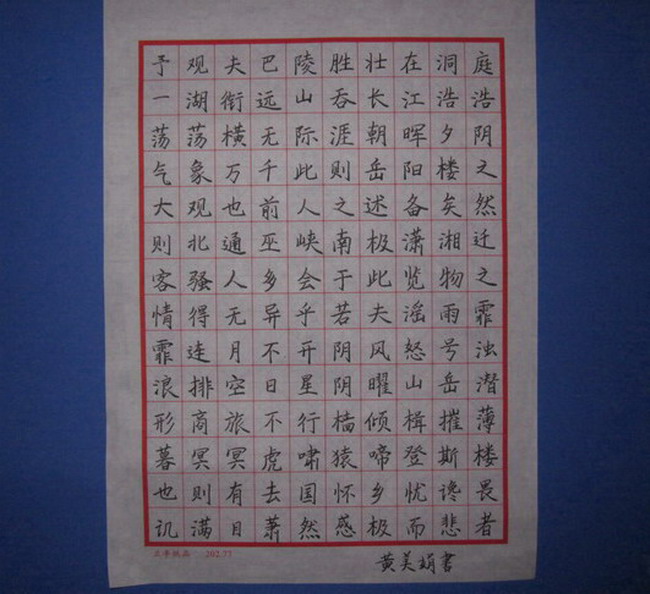 予观夫巴陵胜壮在洞庭
一湖衔远山吞长江浩浩
荡荡横无际涯朝晖夕阴
气象万千此则岳阳楼之
大观也前人之述备矣然
则北通巫峡南极潇湘迁
客骚人多会于此览物之
情得无异乎若夫谣雨霏
霏连月不开阴风怒号浊
浪排空日星阴曜山岳潜
形商旅不行樯倾楫摧薄
暮冥冥虎啸猿啼登斯楼
也则有去国怀乡忧谗畏
讥满目萧然感极而悲者
202.77
黄美娟書